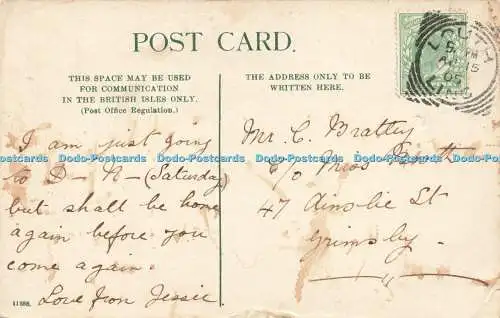 POST CARD.
THIS SPACE MAY BE USED
FOR COMMUNICATION
IN THE BRITISH ISLES ONLY.
(Post Office Regulation.)
THE ADDRESS ONLY TO BE
WRITTEN HERE.
LOUTH
LINC
I am just going
to D - N - (Saturday)
but shall be home
again before you
come again.
Love from Jessie
Mr. C. Brattey
c/o Miss
47 Ainslie St
Grimsby.
11388.
Dodo-Postcards Dodo-Postcards Dodo-Postcards Dodo-Postcards Dodo-Postcards